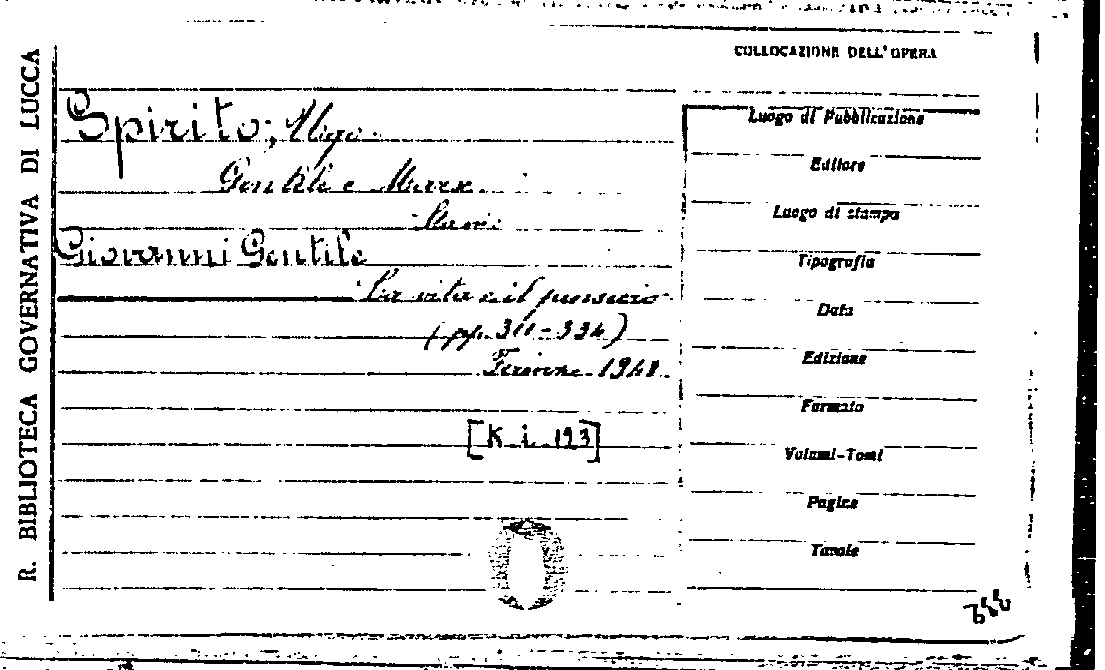 R. BIBLIOTECA GOVERNATIVA DI LUCCA
COLLOCAZIONE DELL'OPERA
Spirito, Ugo.
Gentile e Marx.
Giovanni Gentile
La vita e il pensiero
(pp. 311-334)
Firenze 1948.
[K i 123]
Luogo di Pubblicazione
Editore
Luogo di stampa
Tipografia
Data
Edizione
Formato
Volumi-Tomi
Pagine
Tavole